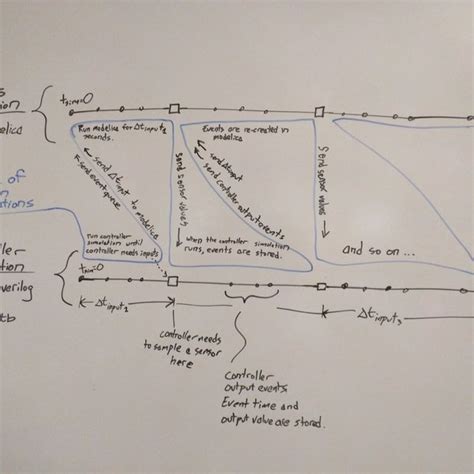 t sim=0
Run modelica for Δt input1
seconds.
Events are re-created in
modelica
send Δt input to modelica
& send event queue
send sensor values
send Δt input
send controller output events
Send sensor values
of
run controller
simulation until
controller needs inputs
when the controller simulation
runs, events are stored.
And so on ...
t sim=0
verilog
tb
Δt input1
Δt input3
controller needs
to sample a sensor
here
Controller
output events
Event time and
output value are stored.